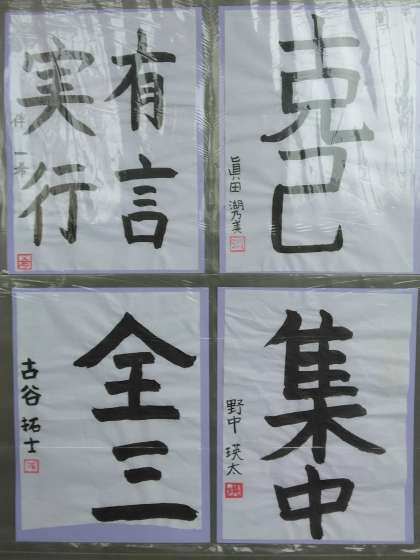 克己
眞田 湖乃美
有言
実行
集中
野中 瑛太
全三
古谷 拓士